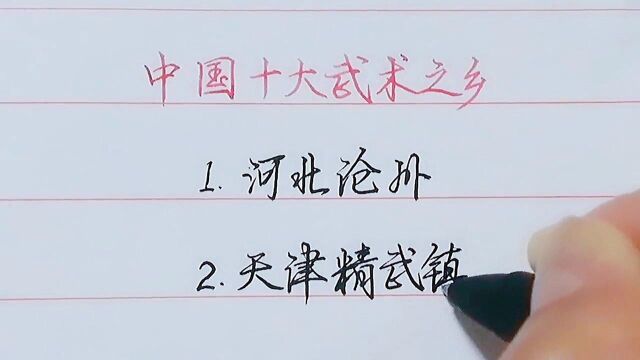 中国十大武术之乡
1. 河北沧州
2. 天津精武镇